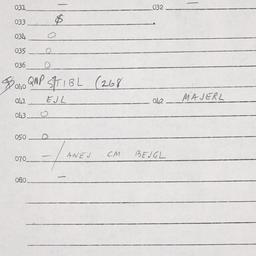 031 — 032 —
033 $
034 0
035 0
036 0
040 QMP STIBL (268
041 EJL 042 MAJERL
043 0
050 0
070 — / ANEJ CM BEJGL
080 —